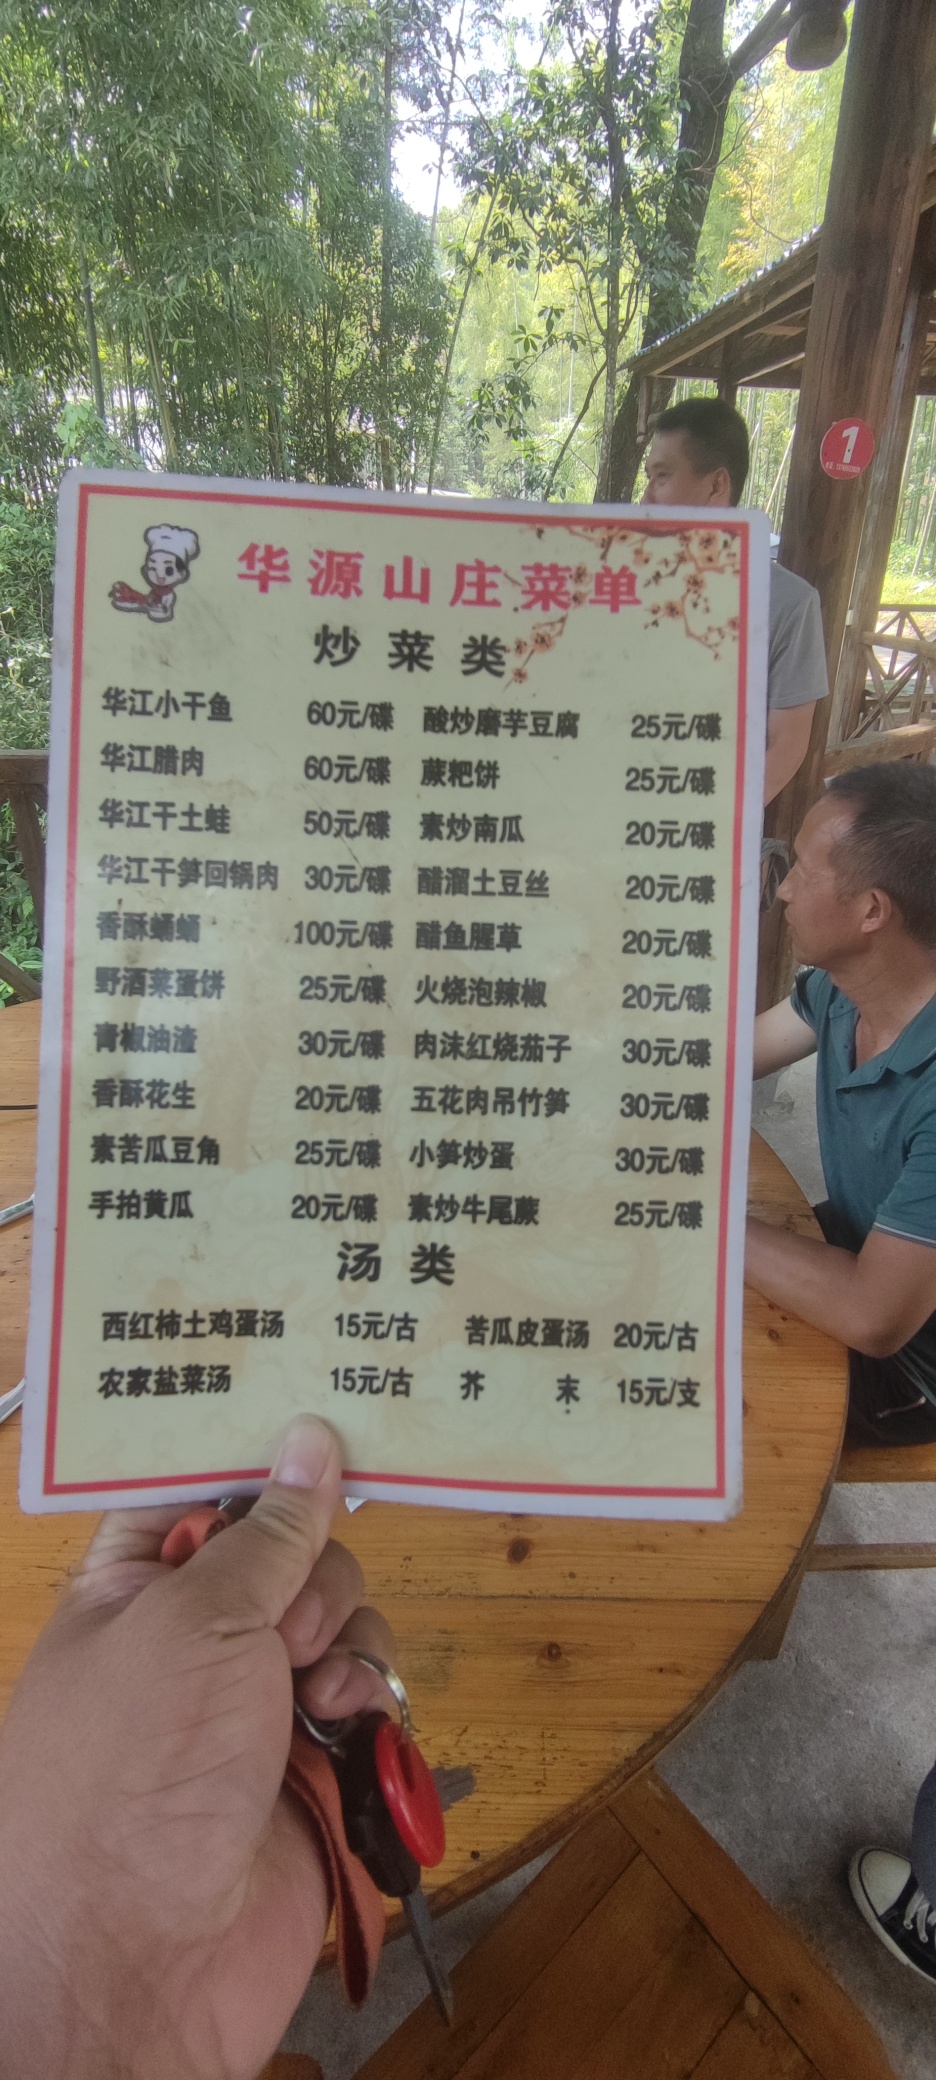 华源山庄菜单
炒菜类
华江小干鱼 60元/碟 酸炒磨芋豆腐 25元/碟
华江腊肉 60元/碟 蕨粑饼 25元/碟
华江干土蛙 50元/碟 素炒南瓜 20元/碟
华江干笋回锅肉 30元/碟 醋溜土豆丝 20元/碟
香酥蛹蛹 100元/碟 醋鱼腥草 20元/碟
野酒菜蛋饼 25元/碟 火烧泡辣椒 20元/碟
青椒油渣 30元/碟 肉沫红烧茄子 30元/碟
香酥花生 20元/碟 五花肉吊竹笋 30元/碟
素苦瓜豆角 25元/碟 小笋炒蛋 30元/碟
手拍黄瓜 20元/碟 素炒牛尾蕨 25元/碟
汤类
西红柿土鸡蛋汤 15元/古 苦瓜皮蛋汤 20元/古
农家盐菜汤 15元/古 芥末 15元/支
1